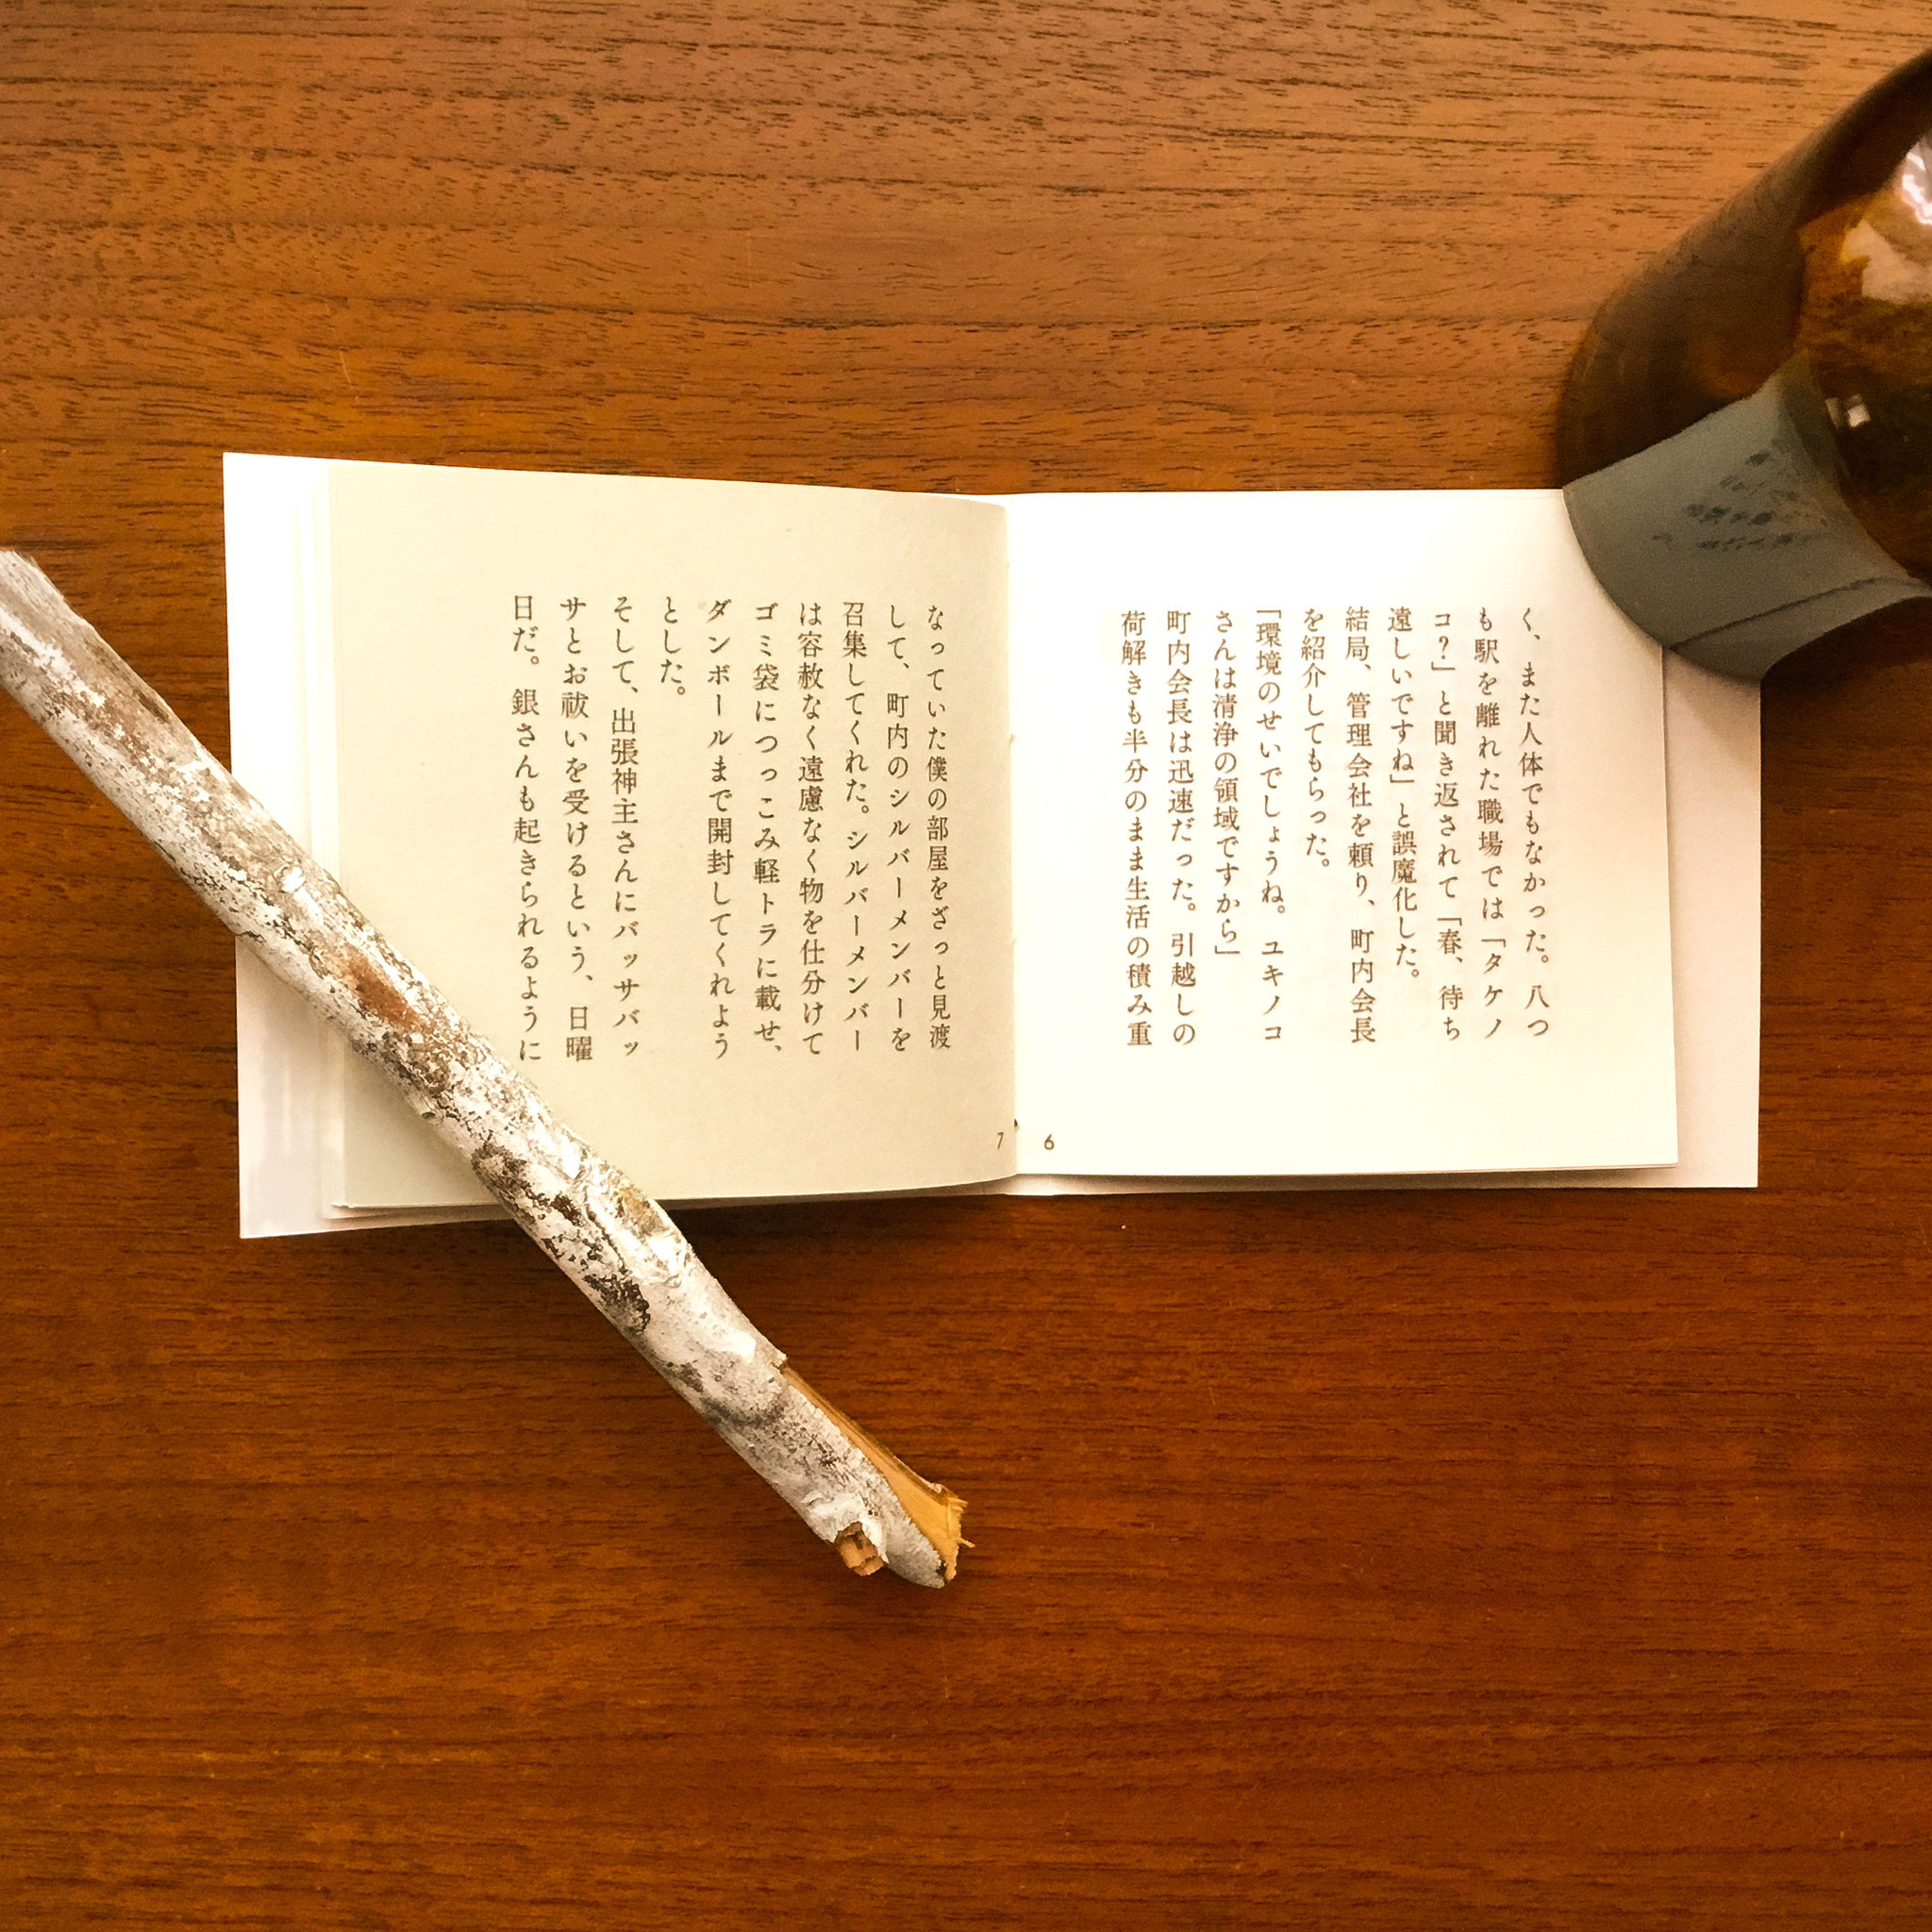 く、また人体でもなかった。八つ
も駅を離れた職場では「タケノ
コ？」と聞き返されて「春、待ち
遠しいですね」と誤魔化した。
結局、管理会社を頼り、町内会長
を紹介してもらった。
「環境のせいでしょうね。ユキノコ
さんは清浄の領域ですから」
町内会長は迅速だった。引越しの
荷解きも半分のまま生活の積み重
6
なっていた僕の部屋をざっと見渡
して、町内のシルバーメンバーを
召集してくれた。シルバーメンバー
は容赦なく遠慮なく物を仕分けて
ゴミ袋につっこみ軽トラに載せ、
ダンボールまで開封してくれよう
とした。
そして、出張神主さんにバッサバッ
サとお祓いを受けるという、日曜
日だ。銀さんも起きられるように
7